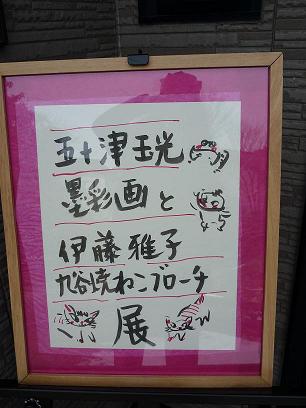 五十津玉光
墨彩画と
伊藤雅子
九谷焼ねこブローチ
展